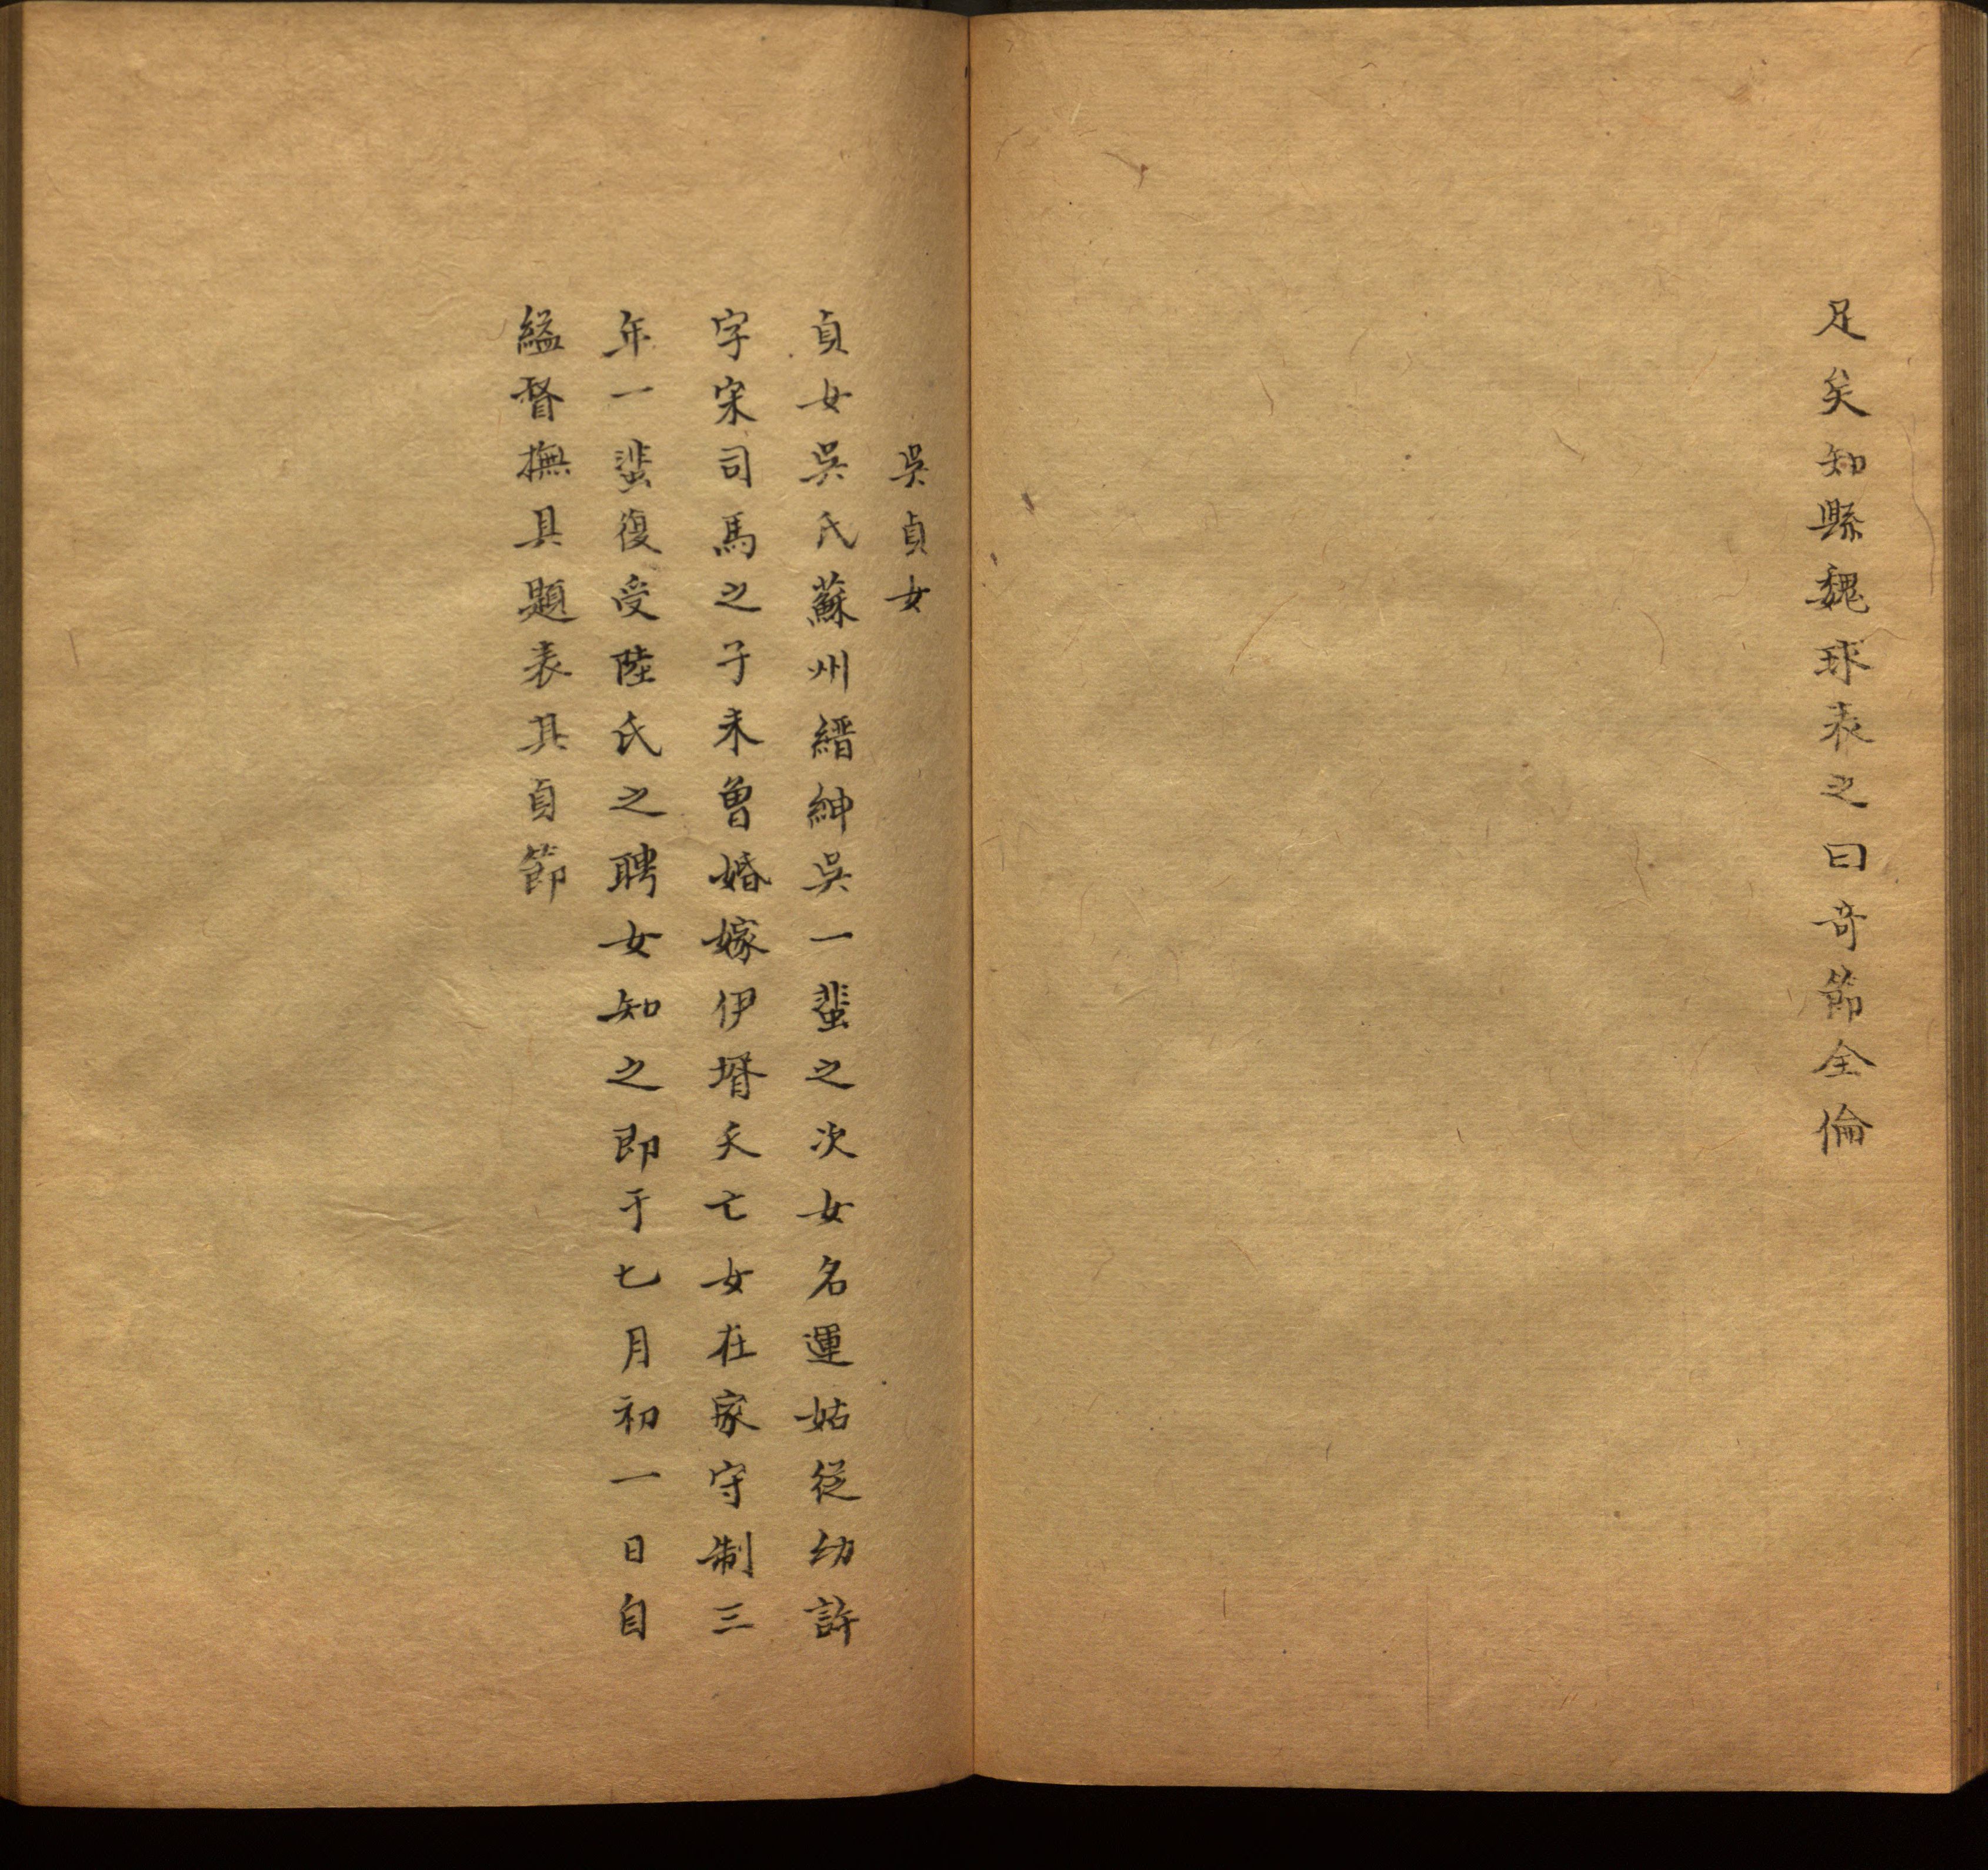 足矣知縣魏球表之曰奇節全倫
吳貞女
貞女吳氏蘇州縉紳吳一蜚之次女名運姑從幼許
字宋司馬之子未曾婚嫁伊壻夭亡女在家守制三
年一蜚復受陸氏之聘女知之即于七月初一日自
縊督撫具題表其貞節